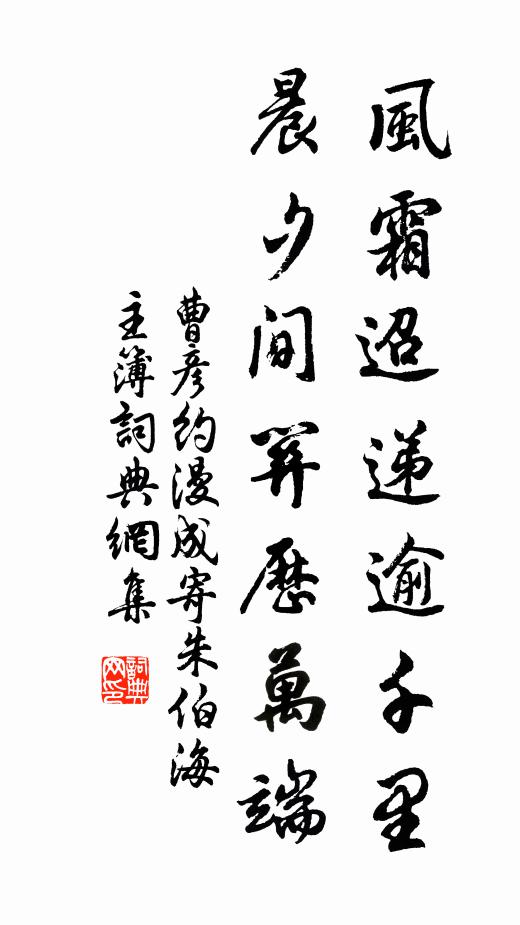 風霜迢递逾千里
晨夕間關歷萬端
曹彦約漫成寄朱伯海
主簿詞典網集
詞典网印